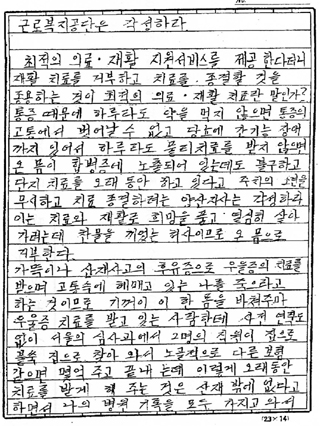 No.
근로복지공단은 각성하라
최적의 의료·재활 지원서비스를 제공한다더니
재활 치료를 거부하고 치료를 종결할 것을
종용하는 것이 최적의 의료·재활 치료란 말인가?
통증 때문에 하루라도 약을 먹지 않으면 통증의
고통에서 벗어날 수 없고 당뇨에 간기능 장애
까지 있어서 하루라도 물리치료를 받지 않으면
온 몸이 합병증에 노출되어 있는데도 불구하고
단지 치료를 오래 동안 하고 있다고 주치의 소견을
무시하고 치료 종결하려는 각성하라
이는 치료와 재활로 희망을 품고 열심히 살아
가려는데 찬물을 끼얹는 처사이므로 온 몸으로
거부한다.
가뜩이나 산재사고의 후유증으로 우울증의 치료를
받으며 고통속에 헤매고 있는 나를 죽으라고
하는 것이므로 기꺼이 이 한 몸을 바쳐주마
우울증 치료를 받고 있는 사람한테 사전 연락도
없이 서울의 심사과에서 2명의 직원이 집으로
불쑥 집으로 찾아 와서 노골적으로 다른 보험
같으면 벌써 주고 끝내는데 이렇게 오래동안
치료를 받게 해 주는 것은 산재 밖에 없다고
하면서 나의 병원 기록을 모두 가지고 와서
(23×16)